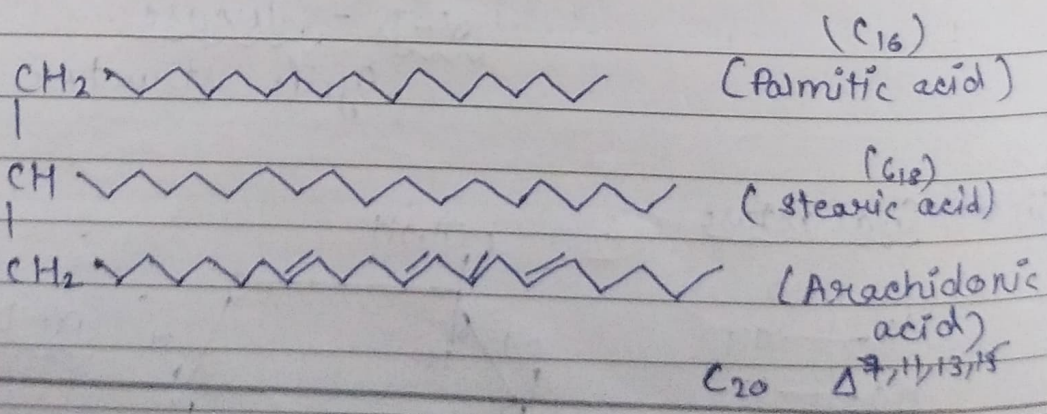 (C16)
CH2 (Palmitic acid)
(C18)
CH (stearic acid)
CH2 (Arachidonic
acid)
C20 Δ 7,11,13,15